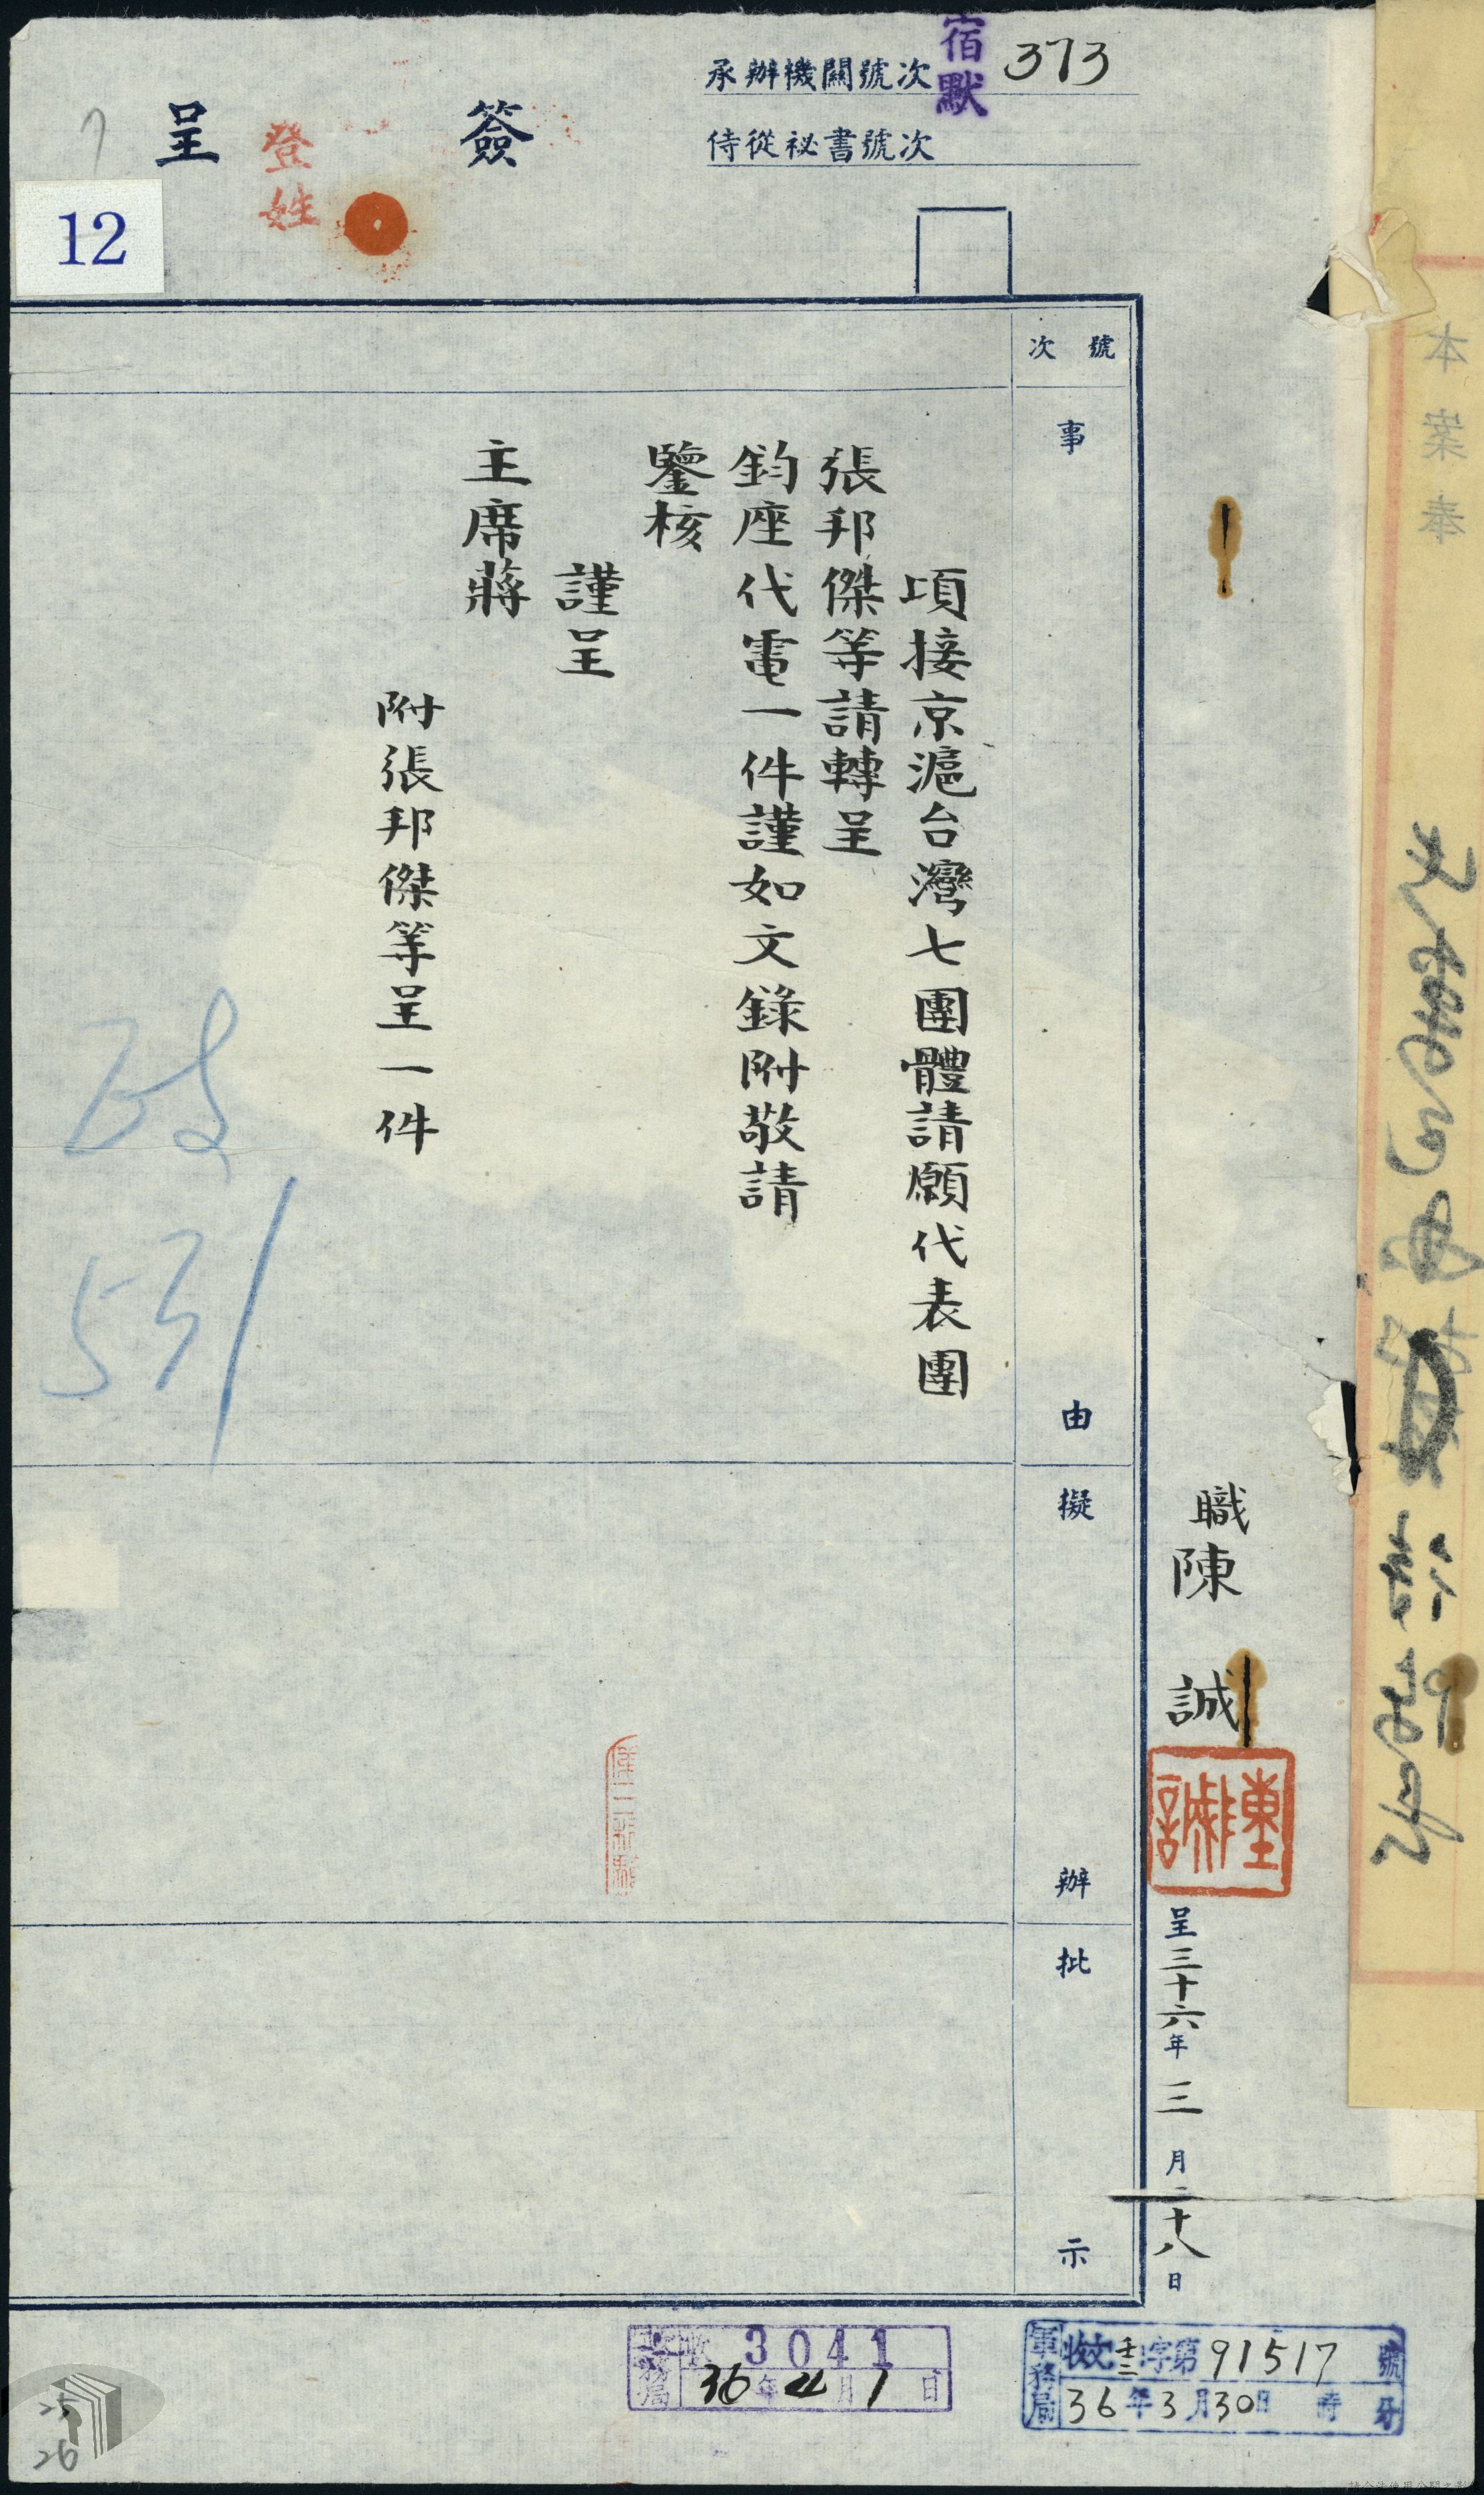 承辦機關號次 宿默 373
侍從祕書號次
簽呈
登
姓
12
號次
事由
擬辦
批示
職陳誠
陳誠
呈三十六年三月二十八日
頃接京滬台灣七團體請願代表團
張邦傑等請轉呈
鈞座代電一件謹如文錄附敬請
鑒核
謹呈
主席蔣
附張邦傑等呈一件
531
軍務局 收文 字第91517號
36年3月30日 時 分
收 3041
36年4月1日
25
26
本案奉